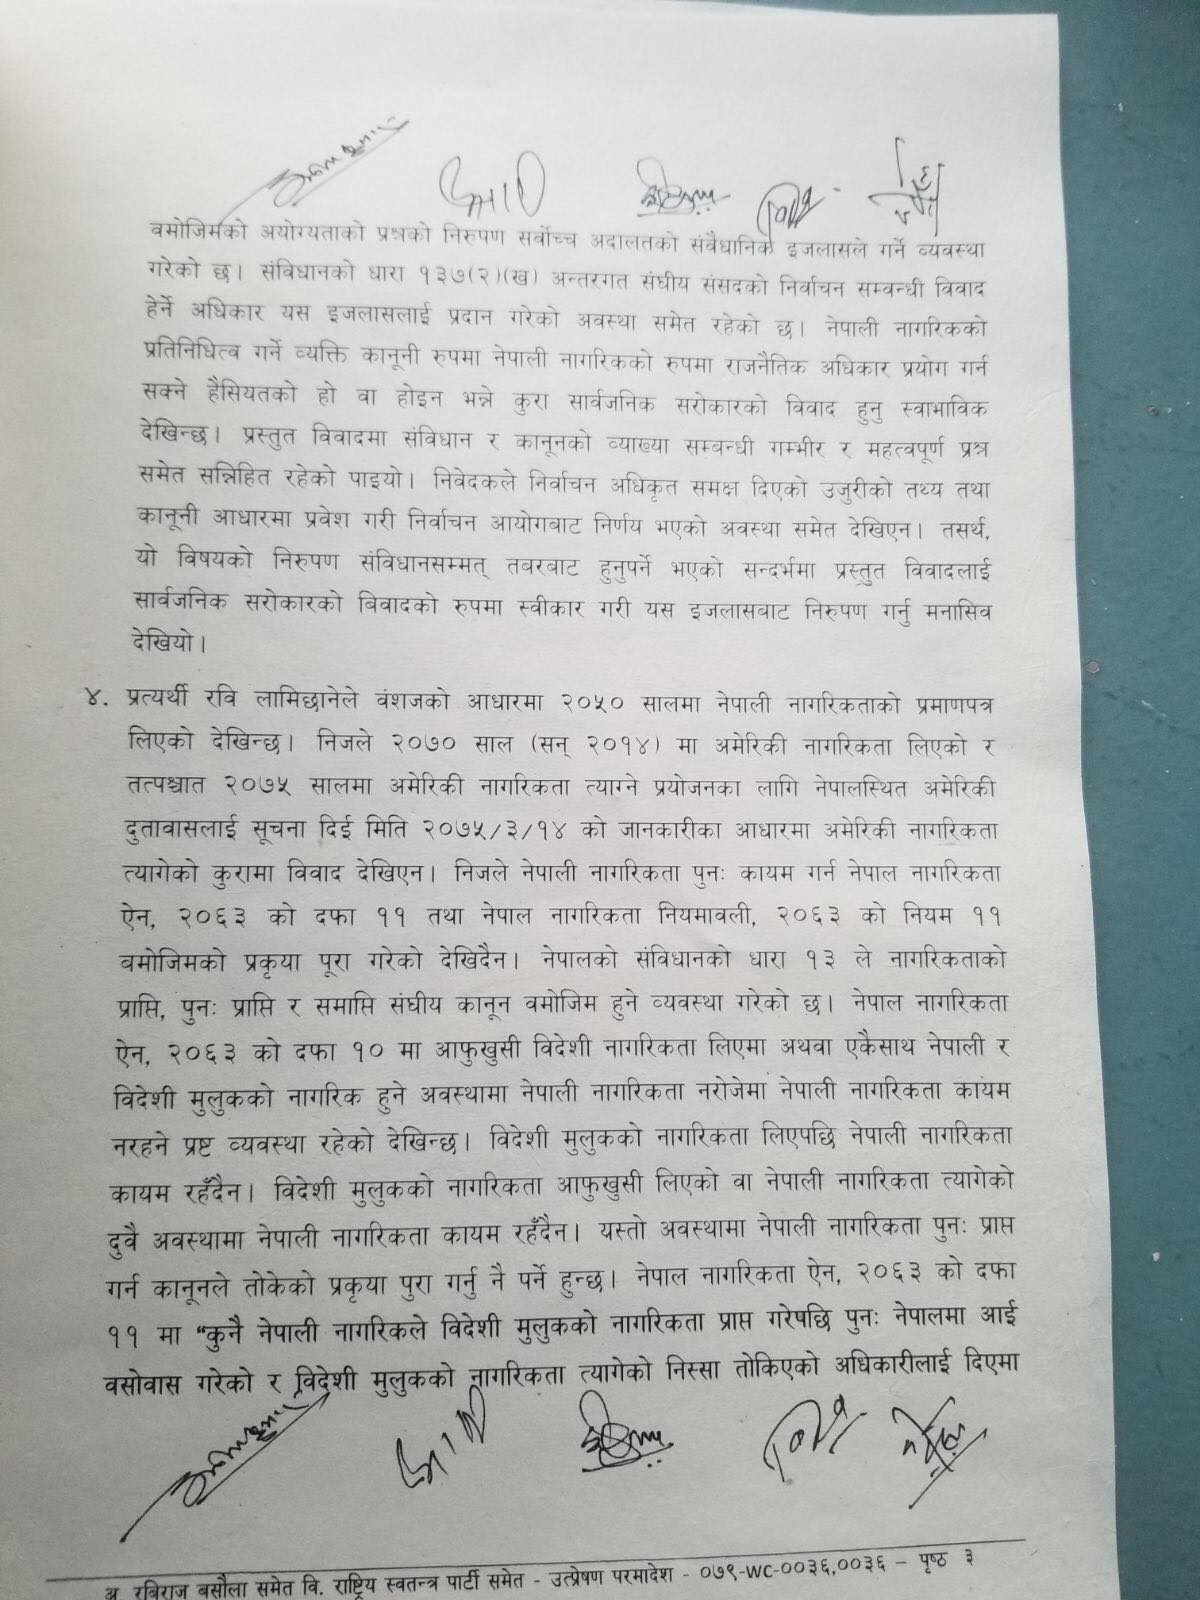 वमोजिमको अयोग्यताको प्रश्नको निरुपण सर्वोच्च अदालतको संवैधानिक इजलासले गर्ने व्यवस्था
गरेको छ। संविधानको धारा १३७(२)(ख) अन्तरगत संघीय संसदको निर्वाचन सम्बन्धी विवाद
हेर्ने अधिकार यस इजलासलाई प्रदान गरेको अवस्था समेत रहेको छ। नेपाली नागरिकको
प्रतिनिधित्व गर्ने व्यक्ति कानूनी रुपमा नेपाली नागरिकको रुपमा राजनैतिक अधिकार प्रयोग गर्न
सक्ने हैसियतको हो वा होइन भन्ने कुरा सार्वजनिक सरोकारको विवाद हुनु स्वाभाविक
देखिन्छ। प्रस्तुत विवादमा संविधान र कानूनको व्याख्या सम्बन्धी गम्भीर र महत्वपूर्ण प्रश्न
समेत सन्निहित रहेको पाइयो। निवेदकले निर्वाचन अधिकृत समक्ष दिएको उजुरीको तथ्य तथा
कानूनी आधारमा प्रवेश गरी निर्वाचन आयोगबाट निर्णय भएको अवस्था समेत देखिएन। तसर्थ,
यो विषयको निरुपण संविधानसम्मत् तबरबाट हुनुपर्ने भएको सन्दर्भमा प्रस्तुत विवादलाई
सार्वजनिक सरोकारको बिवादको रुपमा स्वीकार गरी यस इजलासबाट निरुपण गर्नु मनासिव
देखियो।
४. प्रत्यर्थी रवि लामिछानेले वंशजको आधारमा २०५० सालमा नेपाली नागरिकताको प्रमाणपत्र
लिएको देखिन्छ। निजले २०७० साल (सन् २०१४) मा अमेरिकी नागरिकता लिएको र
तत्पश्चात २०७५ सालमा अमेरिकी नागरिकता त्याग्ने प्रयोजनका लागि नेपालस्थित अमेरिकी
दुतावासलाई सूचना दिई मिति २०७५/३/१४ को जानकारीका आधारमा अमेरिकी नागरिकता
त्यागेको कुरामा विवाद देखिएन। निजले नेपाली नागरिकता पुनः कायम गर्न नेपाल नागरिकता
ऐन, २०६३ को दफा ११ तथा नेपाल नागरिकता नियमावली, २०६३ को नियम ११
बमोजिमको प्रकृया पूरा गरेको देखिदैन। नेपालको संविधानको धारा १३ ले नागरिकताको
प्राप्ति, पुनः प्राप्ति र समाप्ति संघीय कानून वमोजिम हुने व्यवस्था गरेको छ। नेपाल नागरिकता
ऐन, २०६३ को दफा १० मा आफुखुसी विदेशी नागरिकता लिएमा अथवा एकैसाथ नेपाली र
विदेशी मुलुकको नागरिक हुने अवस्थामा नेपाली नागरिकता नरोजेमा नेपाली नागरिकता कायम
नरहने प्रष्ट व्यवस्था रहेको देखिन्छ। विदेशी मुलुकको नागरिकता लिएपछि नेपाली नागरिकता
कायम रहँदैन। विदेशी मुलुकको नागरिकता आफुखुसी लिएको वा नेपाली नागरिकता त्यागेको
दुवै अवस्थामा नेपाली नागरिकता कायम रहँदैन। यस्तो अवस्थामा नेपाली नागरिकता पुनः प्राप्त
गर्न कानूनले तोकेको प्रकृया पुरा गर्नु नै पर्ने हुन्छ। नेपाल नागरिकता ऐन, २०६३ को दफा
११ मा “कुनै नेपाली नागरिकले विदेशी मुलुकको नागरिकता प्राप्त गरेपछि पुनः नेपालमा आई
वसोवास गरेको र विदेशी मुलुकको नागरिकता त्यागेको निस्सा तोकिएको अधिकारीलाई दिएमा
अ. रबिराज बसौला समेत वि. राष्ट्रिय स्वतन्त्र पार्टी समेत - उत्प्रेषण परमादेश - ०७९-WC-००३६,००३६ – पृष्ठ ३